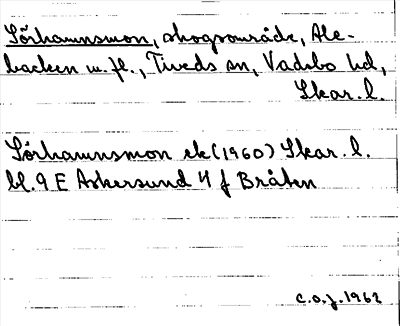 Sörhamnsmon, skogsområde, Ale-
backen m.fl., Tiveds sn, Vadsbo hd,
Skar. l.
Sörhamnsmon ek (1960) Skar. l.
bl. 9 E Askersund 4 f Bråten
C.O.J. 1962